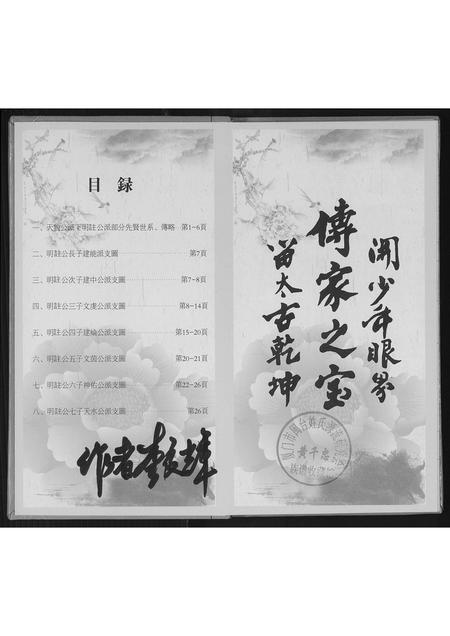 目録
一、天與公派下明註公派部分先賢世系、傳略 第1~6頁
二、明註公長子建能派支圖 第7頁
三、明註公次子建中公派支圖 第7~8頁
四、明註公三子文虔公派支圖 第8~14頁
五、明註公四子建綸公派支圖 第15~20頁
六、明註公五子文茵公派支圖 第20~21頁
七、明註公六子神佑公派支圖 第22~26頁
八、明註公七子天水公派支圖 第26頁
作者李
開少年眼界
傳家之宝
留太古乾坤
厦门市闽台姓氏
黄千忠
族谱收藏